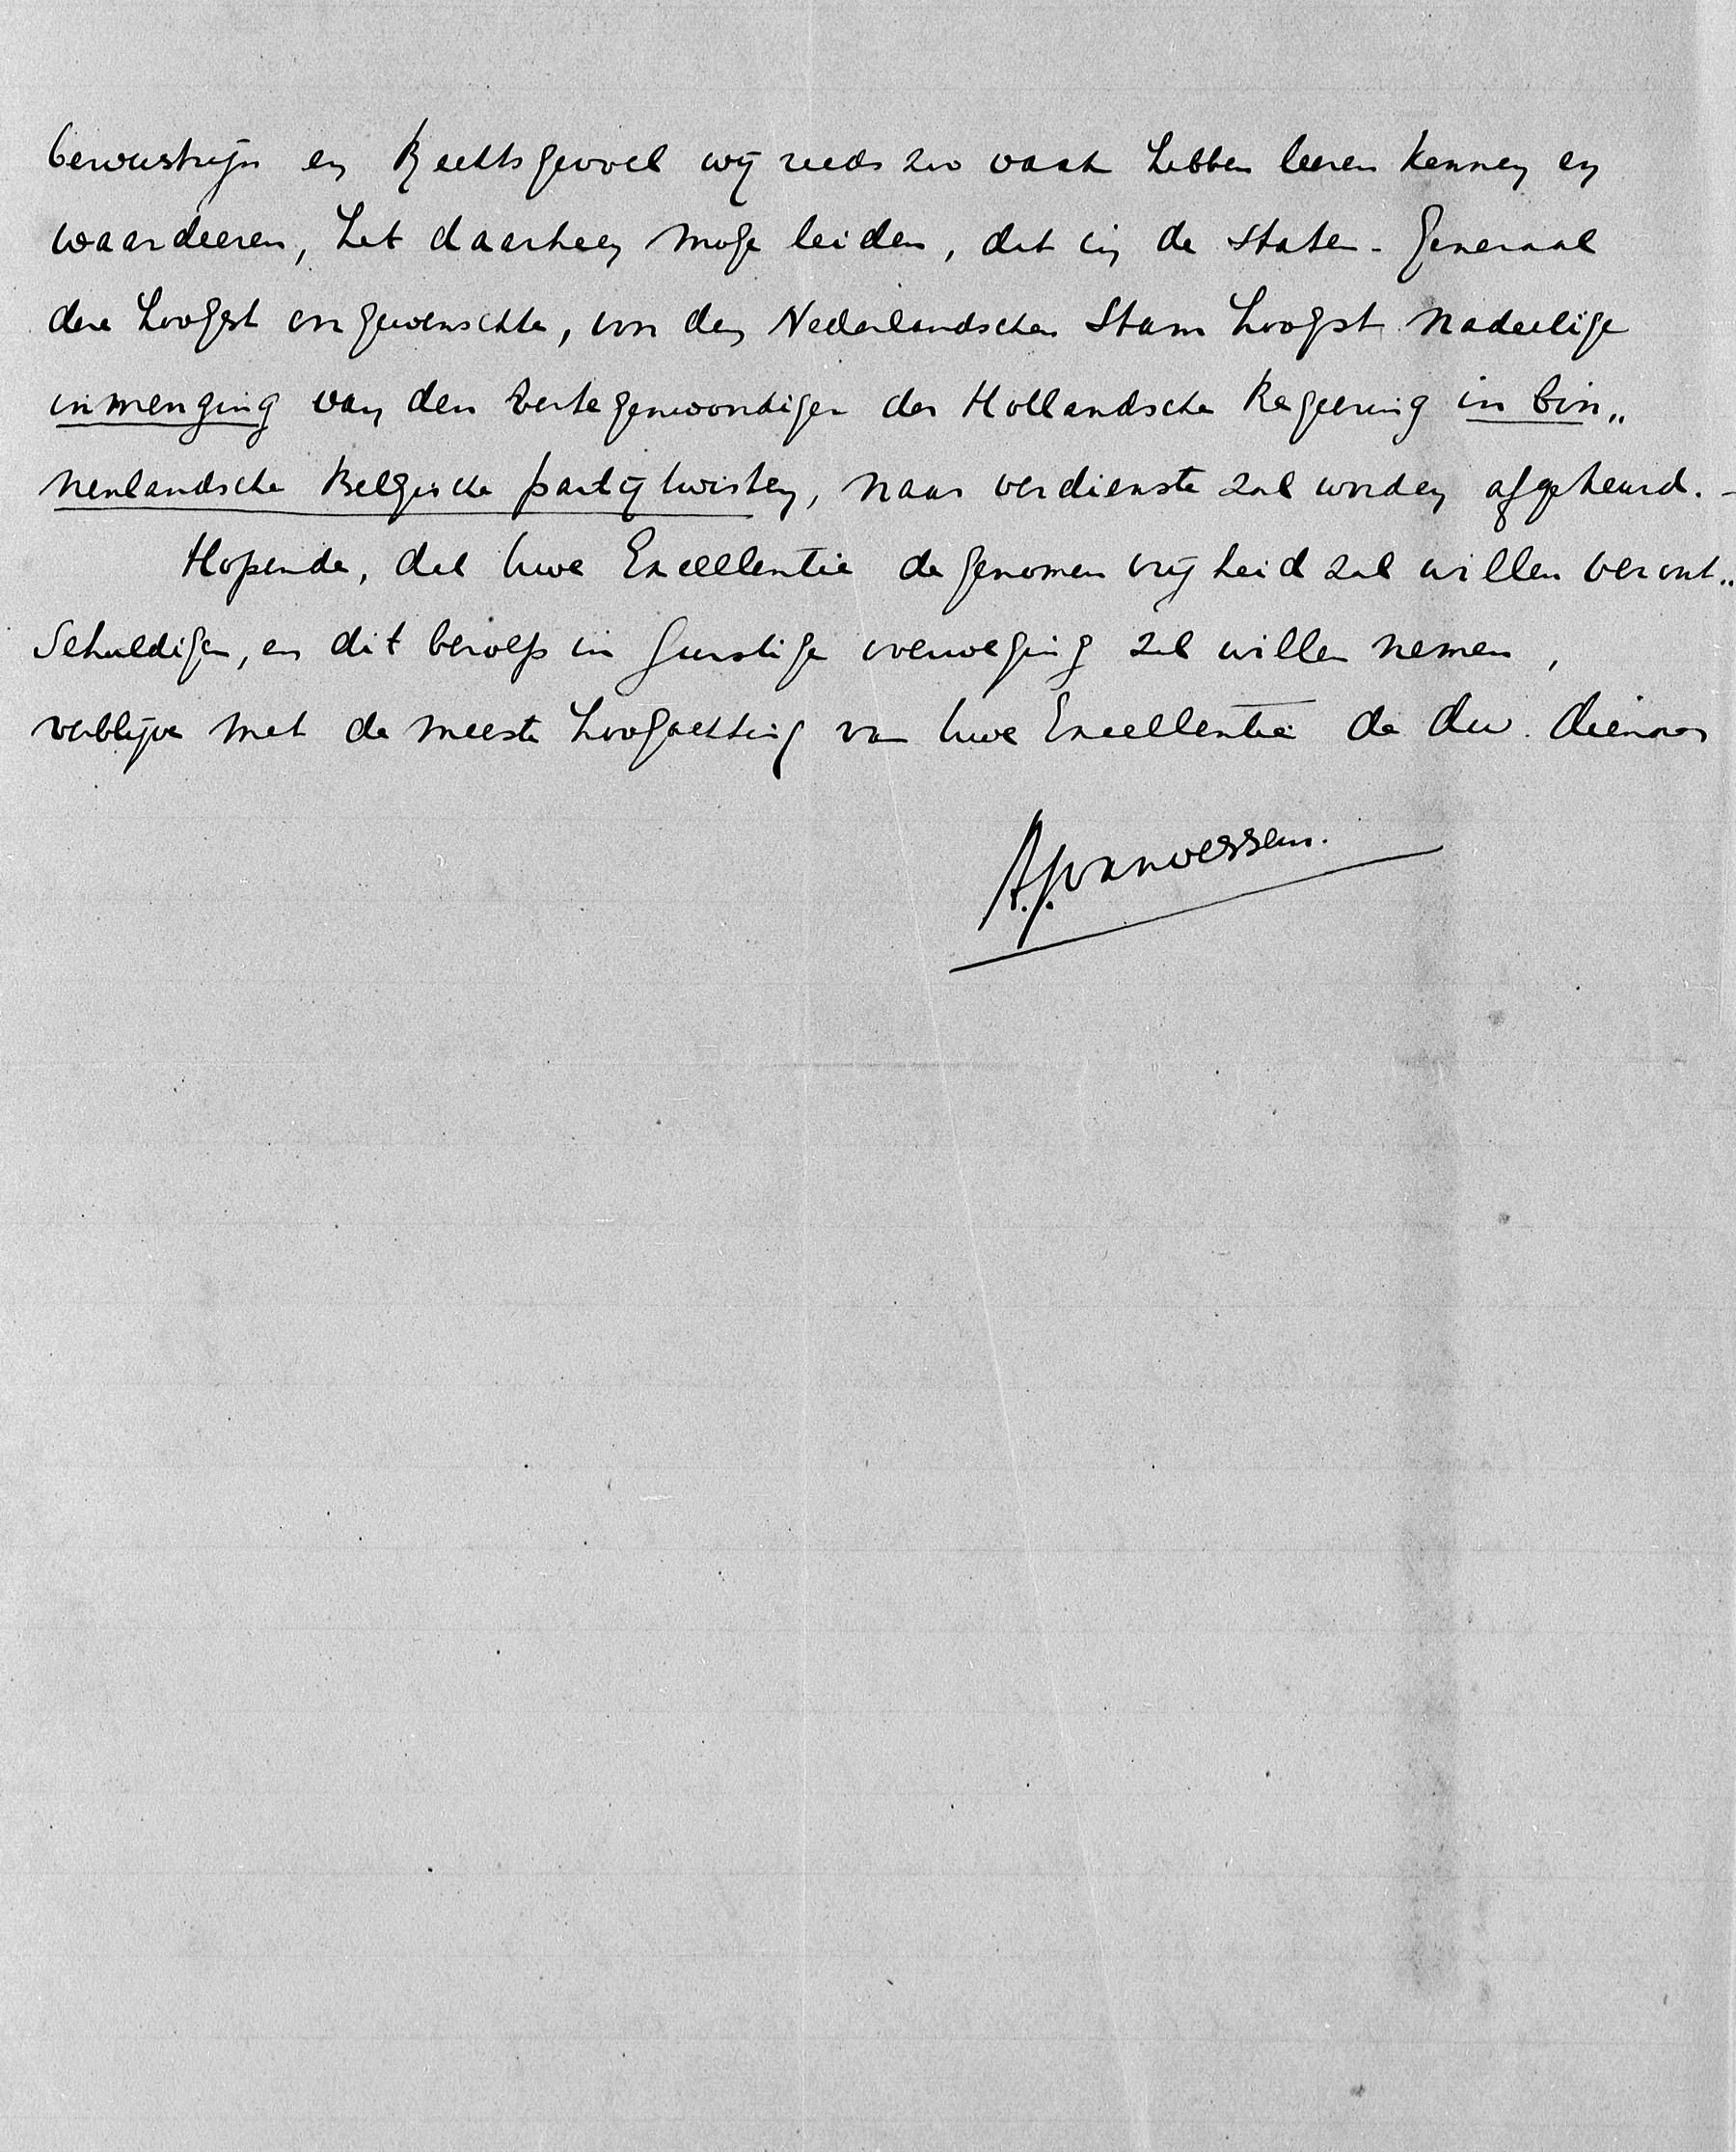 bewustzijn en Rechtsgevoel wij reeds zoo vaak hebben leeren kennen en
waardeeren, het daarheen moge leiden, dat in de Staten-Generaal
deze hoogst ongewenschte, voor den Nederlandschen Stam hoogst nadeelige
inmenging van den Vertegenwoordiger der Hollandsche Regeering in bin„
nenlandsche Belgische partijtwisten, naar verdienste zal worden afgekeurd. -
Hopende, dat Uwe Excellentie de genomen vrijheid zal willen veront„
schuldigen, en dit beroep in gunstige overweging zal willen nemen,
verblijve met de meeste hoogachting van Uwe Excellentie de dw. dienaar
A.J. van Wessem.